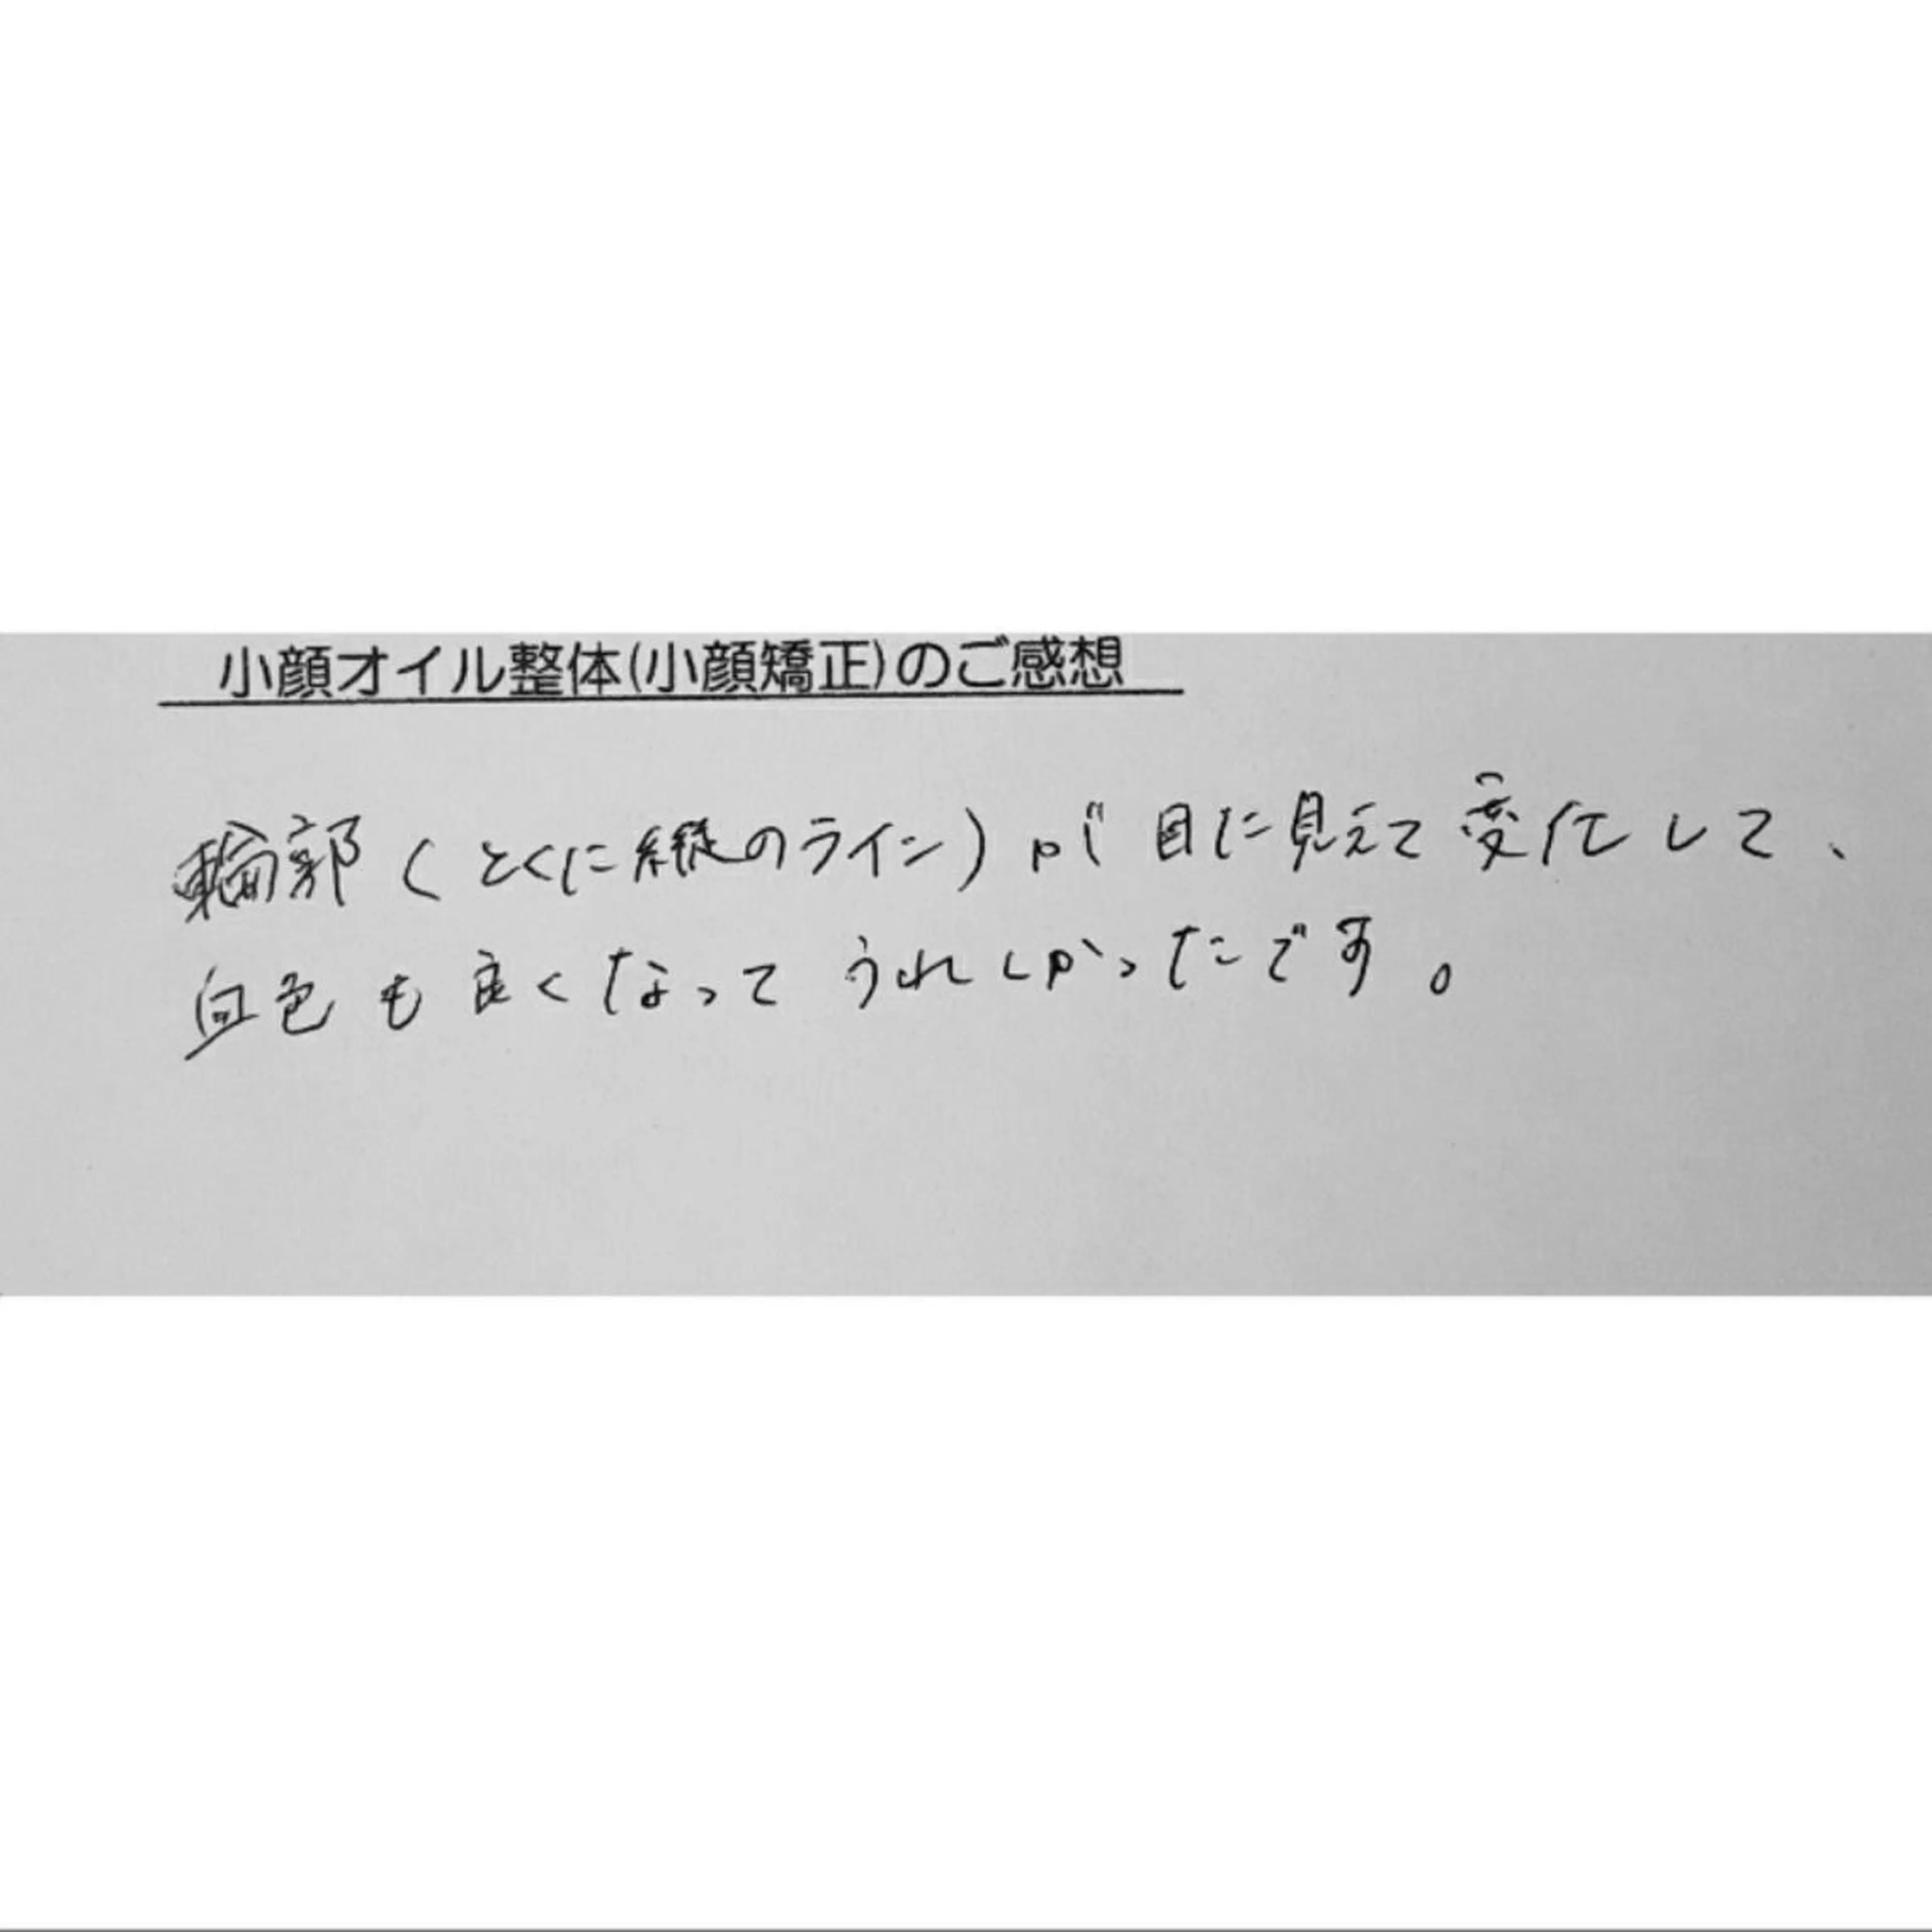 小顔オイル整体(小顔矯正)のご感想
輪郭(とくに縦のライン)が目に見えて変化して、
血色も良くなってうれしかったです。